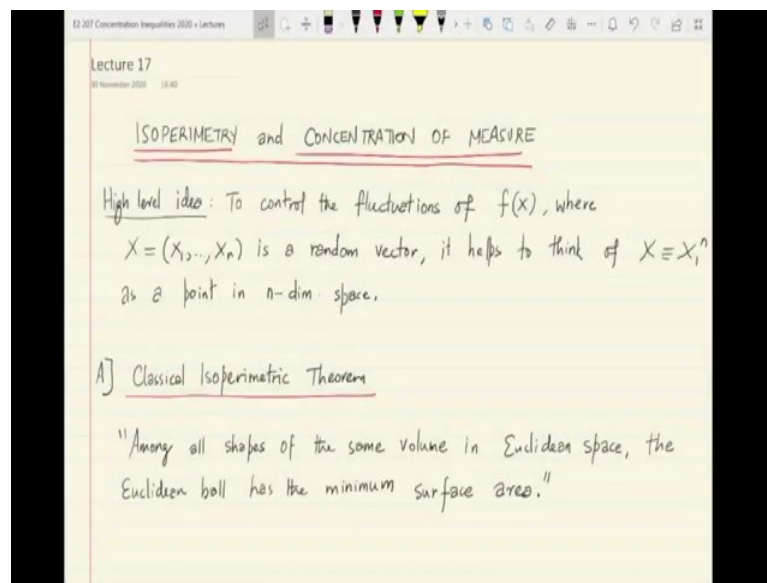 E2 207 Concentration Inequalities 2020 » Lectures
Lecture 17
30 November 2020 16:40
ISOPERIMETRY and CONCENTRATION OF MEASURE
High level idea: To control the fluctuations of f(X), where
X = (X₁,..,Xₙ) is a random vector, it helps to think of X ≡ X₁ⁿ
as a point in n-dim. space.
A] Classical Isoperimetric Theorem
"Among all shapes of the same volume in Euclidean space, the
Euclidean ball has the minimum surface area."